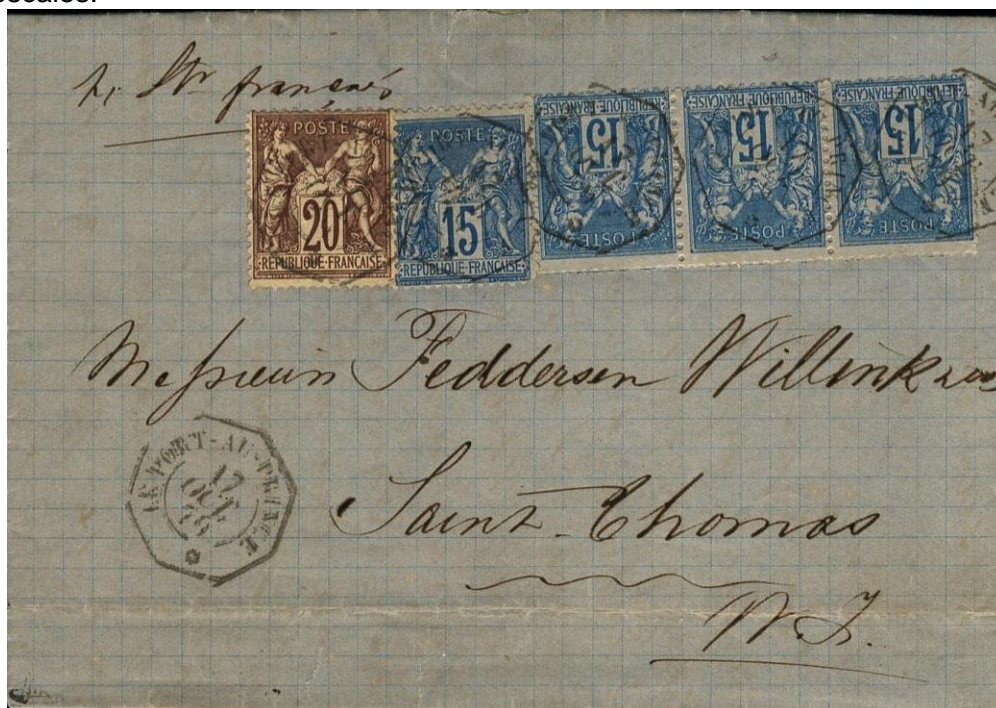 Str français
POSTE 20 REPUBLIQUE·FRANÇAISE
POSTE 15 REPUBLIQUE·FRANÇAISE
POSTE 15 REPUBLIQUE FRANÇAISE
POSTE 15 REPUBLIQUE FRANÇAISE
POSTE 15 REPUBLIQUE FRANÇAISE
Feddersen Willink
LE PORT-AU-PRINCE
17
OCT
79
Saint Thomas
W.I.